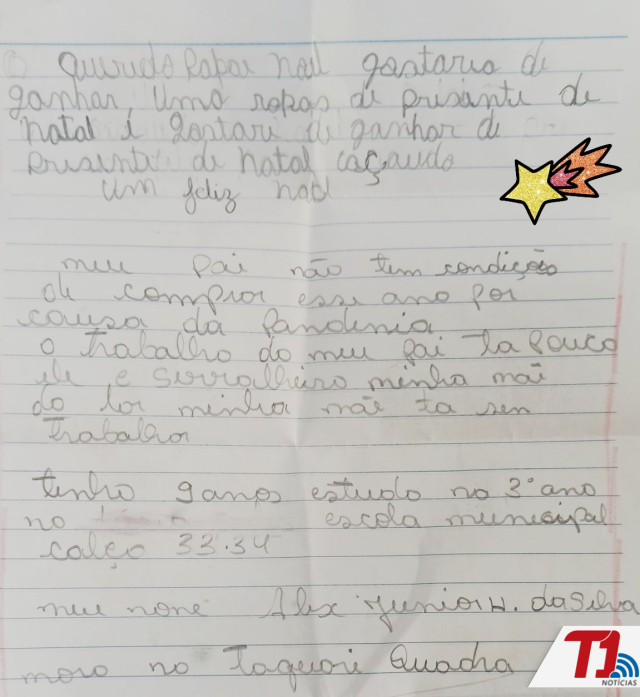 Querudo Papai noel gostaria di
ganhar uma ropas di prisante de
natal i gostari di ganhar di
prusenti di natal caçaudo
um feliz noel
meu pai não tem condição
de compror essi ano por
causa da pandemia
o trabalho do meu pai ta pouco
ele e serralheiro minha mãe
do lor minha mãe ta sen
trabalhor
tenho 9 anos estudo no 3º ano
no escola municipal
calço 33.34
meu none Alex junior H. da Silva
moro no Taquari Quadra
T1
NOTÍCIAS